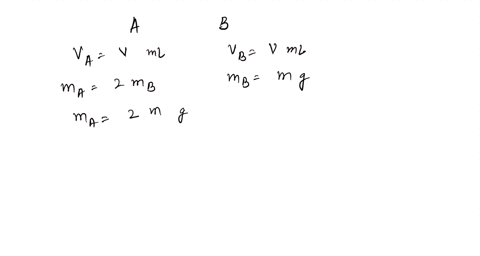 A B
V_A = V mL V_B = V mL
m_A = 2 m_B m_B = m g
m_A = 2 m g